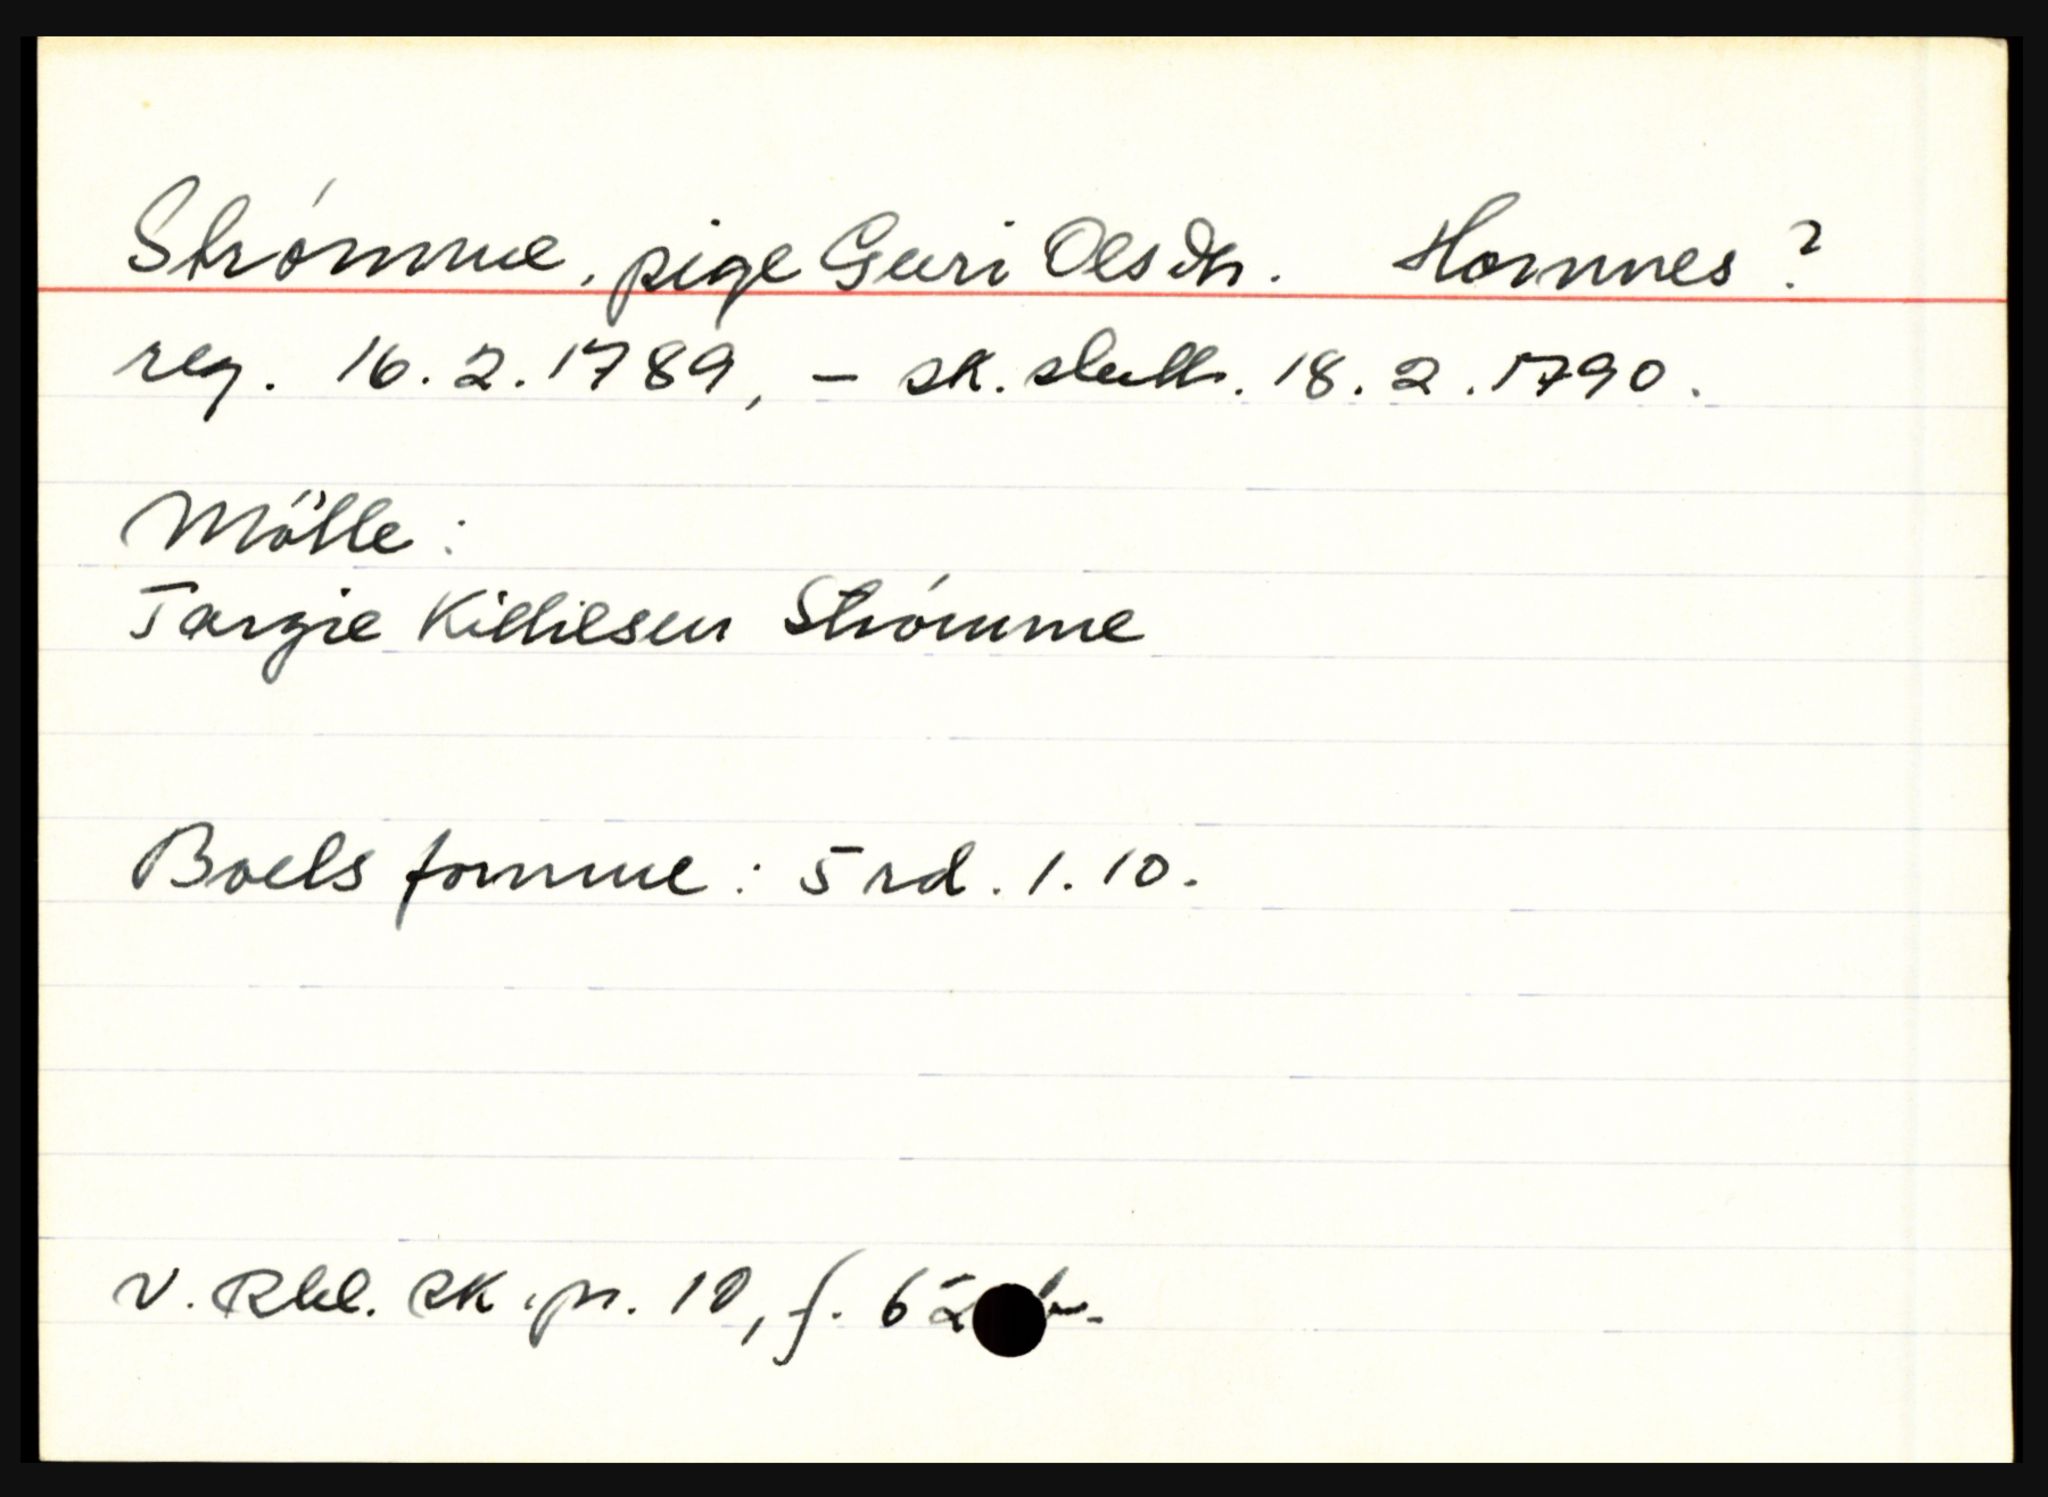 Strømme, pige Guri Olsdtr. Hornnes ?
reg. 16.2.1789, - sk. slutt. 18.2.1790.
Møtte:
Targie Kittilsen Strømme
Boets fomue: 5 rd. 1. 10.
v. Rbl. sk.pr. 10, f.